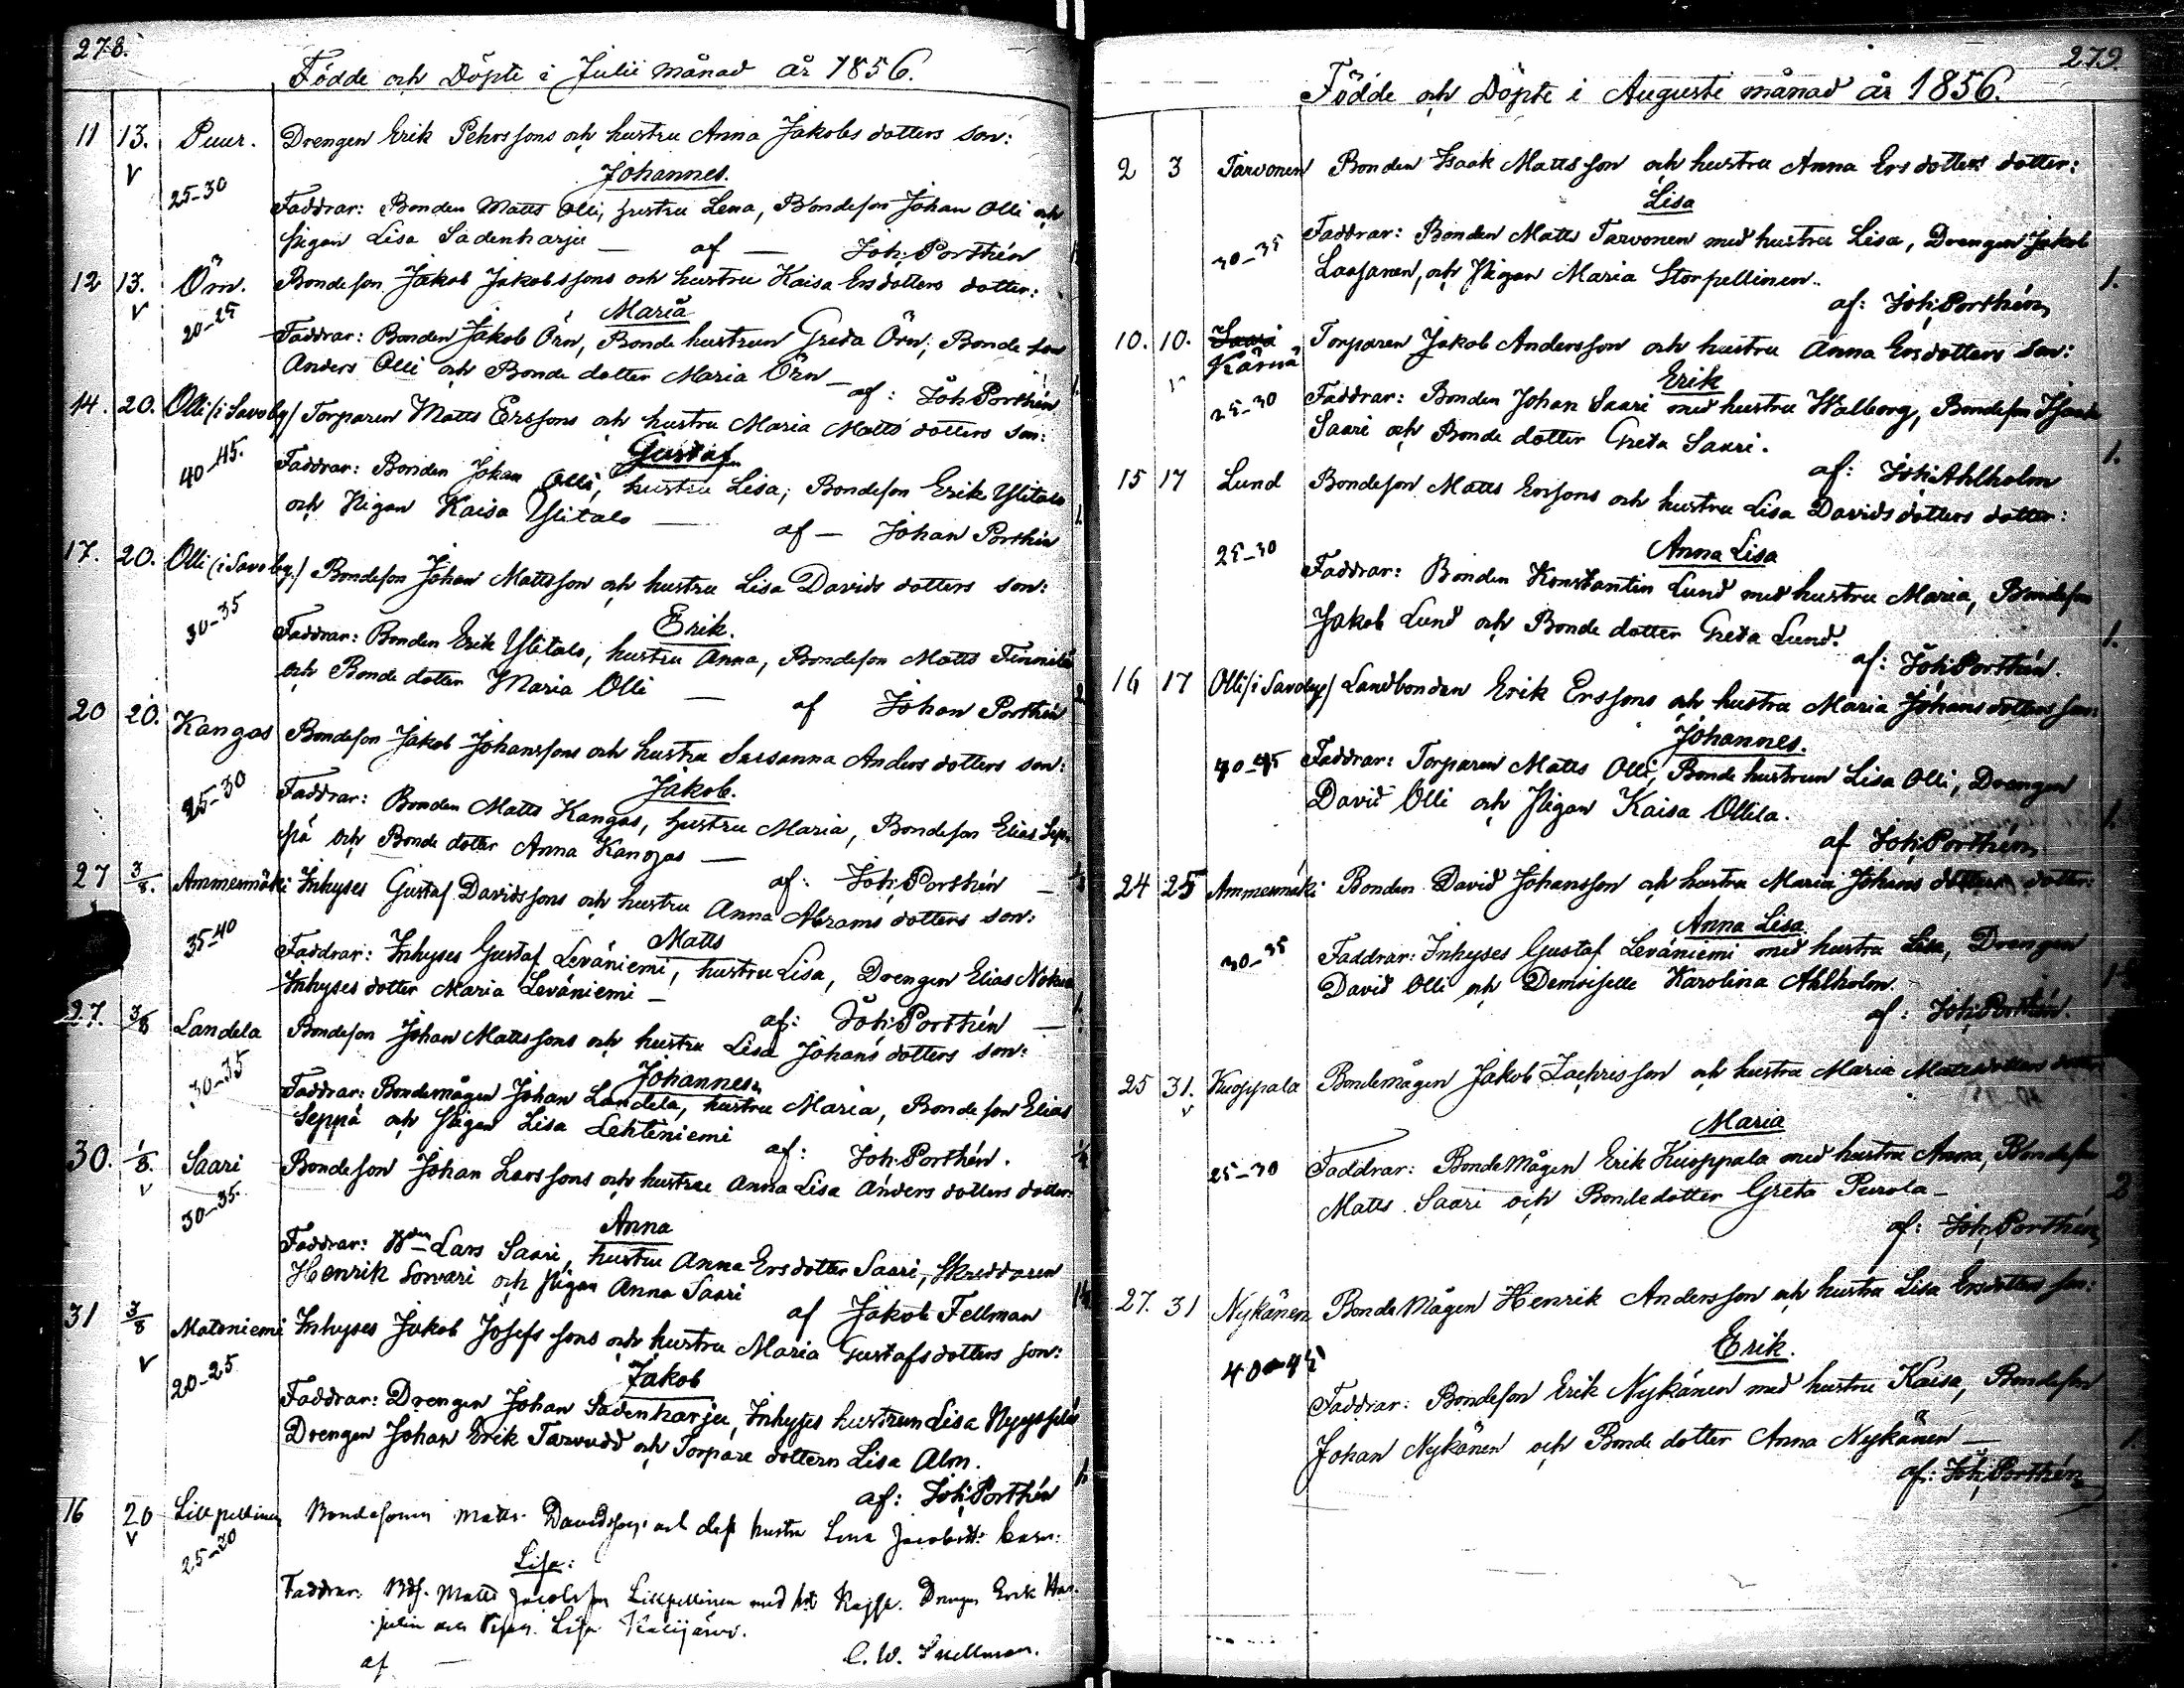 278.
Födde och Döpte i Julii månad år 1856.
11 13. Puur. Drengen Erik Pehrssons och hustru Anna Jakobs dotters son:
V
Johannes.
25-30
Faddrar: Bonden Matts Olli, hustru Lena, Bondeson Johan Olli och
Pigan Lisa Sadenharju — af — Joh: Porthén
12 13. Örn. Bondeson Jakob Jakobssons och hustru Kaisa Ersdotters dotter:
V
Maria
20-25
Faddrar: Bonden Jakob Örn, Bonde hustrun Greta Örn, Bonde son
Anders Olli och Bonde dotter Maria Örn — af: Joh: Porthén
14. 20. Olli (i Savoby) Torparen Matts Erssons och hustru Maria Matts dotters son:
Gustaf
40-45.
Faddrar: Bonden Johan Olli, hustru Lisa, Bondeson Erik Ylitalo
och Pigan Kaisa Ylitalo — af — Johan Porthén
17. 20. Olli (i Savoby.) Bondeson Johan Mattsson och hustru Lisa Davids dotters son:
Erik.
30-35
Faddrar: Bonden Erik Ylitalo, hustru Anna, Bondeson Matts Finnilä
och Bonde dotter Maria Olli — af Johan Porthén
20 20. Kangas Bondeson Jakob Johanssons och hustru Susanna Anders dotters son:
Jakob.
25-30
Faddrar: Bonden Matts Kangas, hustru Maria, Bondeson Elias Sep-
pä och Bonde dotter Anna Kangas — af: Joh: Porthén —
27 3/8. Ammesmäki Inhyses Gustaf Davidssons och hustru Anna Abrams dotters son:
Matts
35-40
Faddrar: Inhyses Gustaf Leväniemi, hustru Lisa, Drengen Elias
Inhyses dotter Maria Leväniemi — af: Joh: Porthén —
27. 3/8 Landela Bondeson Johan Mattssons och hustru Lisa Johans dotters son:
Johannes
30-35
Faddrar: Bondemågen Johan Landela, hustru Maria, Bondeson Elias
Seppä och Pigan Lisa Lehteniemi af: Joh: Porthén.
30. 1/8. Saari Bondeson Johan Larssons och hustru Anna Lisa Anders dotters dotter:
V
Anna
30-35.
Faddrar: Bden Lars Saari, hustru Anna Ersdotter Saari, Skreddaren
Henrik Sorvari och Pigan Anna Saari af Jakob Fellman
31 3/8 Matoniemi Inhyses Jakob Josefs sons och hustru Maria Gustafs dotters son:
V
Jakob
20-25
Faddrar: Drengen Johan Sadenharju, Inhyses hustrun Lisa
Drengen Johan Erik Tarvudd och Torpare dottern Lisa Alm.
af: Joh: Porthén
16 20 Lillpellinen Bondesonen Matts Davidsson och dess hustru Lena Jacobsdt: barn:
V
Lisa:
25-30
Faddrar: Bds. Matts Jacobsson Lillpellinen med hst Kajsa. Drengen Erik Har-
julin och Pigan Lisa
af — C. W. Snellman.
279.
Födde och Döpte i Augusti månad år 1856.
2 3 Tarvonen Bonden Isaak Mattsson och hustru Anna Ers dotters dotter:
Lisa
30-35
Faddrar: Bonden Matts Tarvonen med hustru Lisa, Drengen Jakob
Laasanen, och Pigan Maria Storpellinen. 1.
af: Joh: Porthén
10. 10. Saari Torparen Jakob Andersson och hustru Anna Ersdotters son:
Kärnä
V
Erik
25-30
Faddrar: Bonden Johan Saari med hustru Walborg, Bondeson Isaak
Saari och Bonde dotter Greta Saari. 1.
af: Joh: Ahlholm
15 17 Lund Bondeson Matts Erssons och hustru Lisa Davids dotters dotter:
Anna Lisa
25-30
Faddrar: Bonden Konstantin Lund med hustru Maria, Bondeson
Jakob Lund och Bonde dotter Greta Lund. 1.
af: Joh: Porthén.
16 17 Olli (i Savoby) Landbonden Erik Erssons och hustru Maria Johans dotters son:
Johannes.
40-45
Faddrar: Torparen Matts Olli, Bonde hustrun Lisa Olli, Drengen
David Olli och Pigan Kaisa Ollila. 1.
af Joh: Porthén
24 25 Ammesmäki Bonden David Johansson och hustru Maria Johans dotters dotter:
Anna Lisa
30-35
Faddrar: Inhyses Gustaf Leväniemi med hustru Lisa, Drengen
David Olli och Demoiselle Karolina Ahlholm.
af: Joh: Porthén.
25 31. Kuoppala Bondemågen Jakob Zachrisson och hustru Maria Mattsdotters dotter
V
Maria
25-30
Faddrar: Bonde Mågen Erik Kuoppala med hustru Anna, Bondeson
Matts Saari och Bondedotter Greta Purola — 2
af: Joh: Porthén
27. 31 Nykänen Bonde Mågen Henrik Andersson och hustru Lisa Ersdotters son:
Erik.
40-45
Faddrar: Bondeson Erik Nykänen med hustru Kaisa, Bondeson
Johan Nykänen och Bonde dotter Anna Nykänen — 1.
af: Joh: Porthén